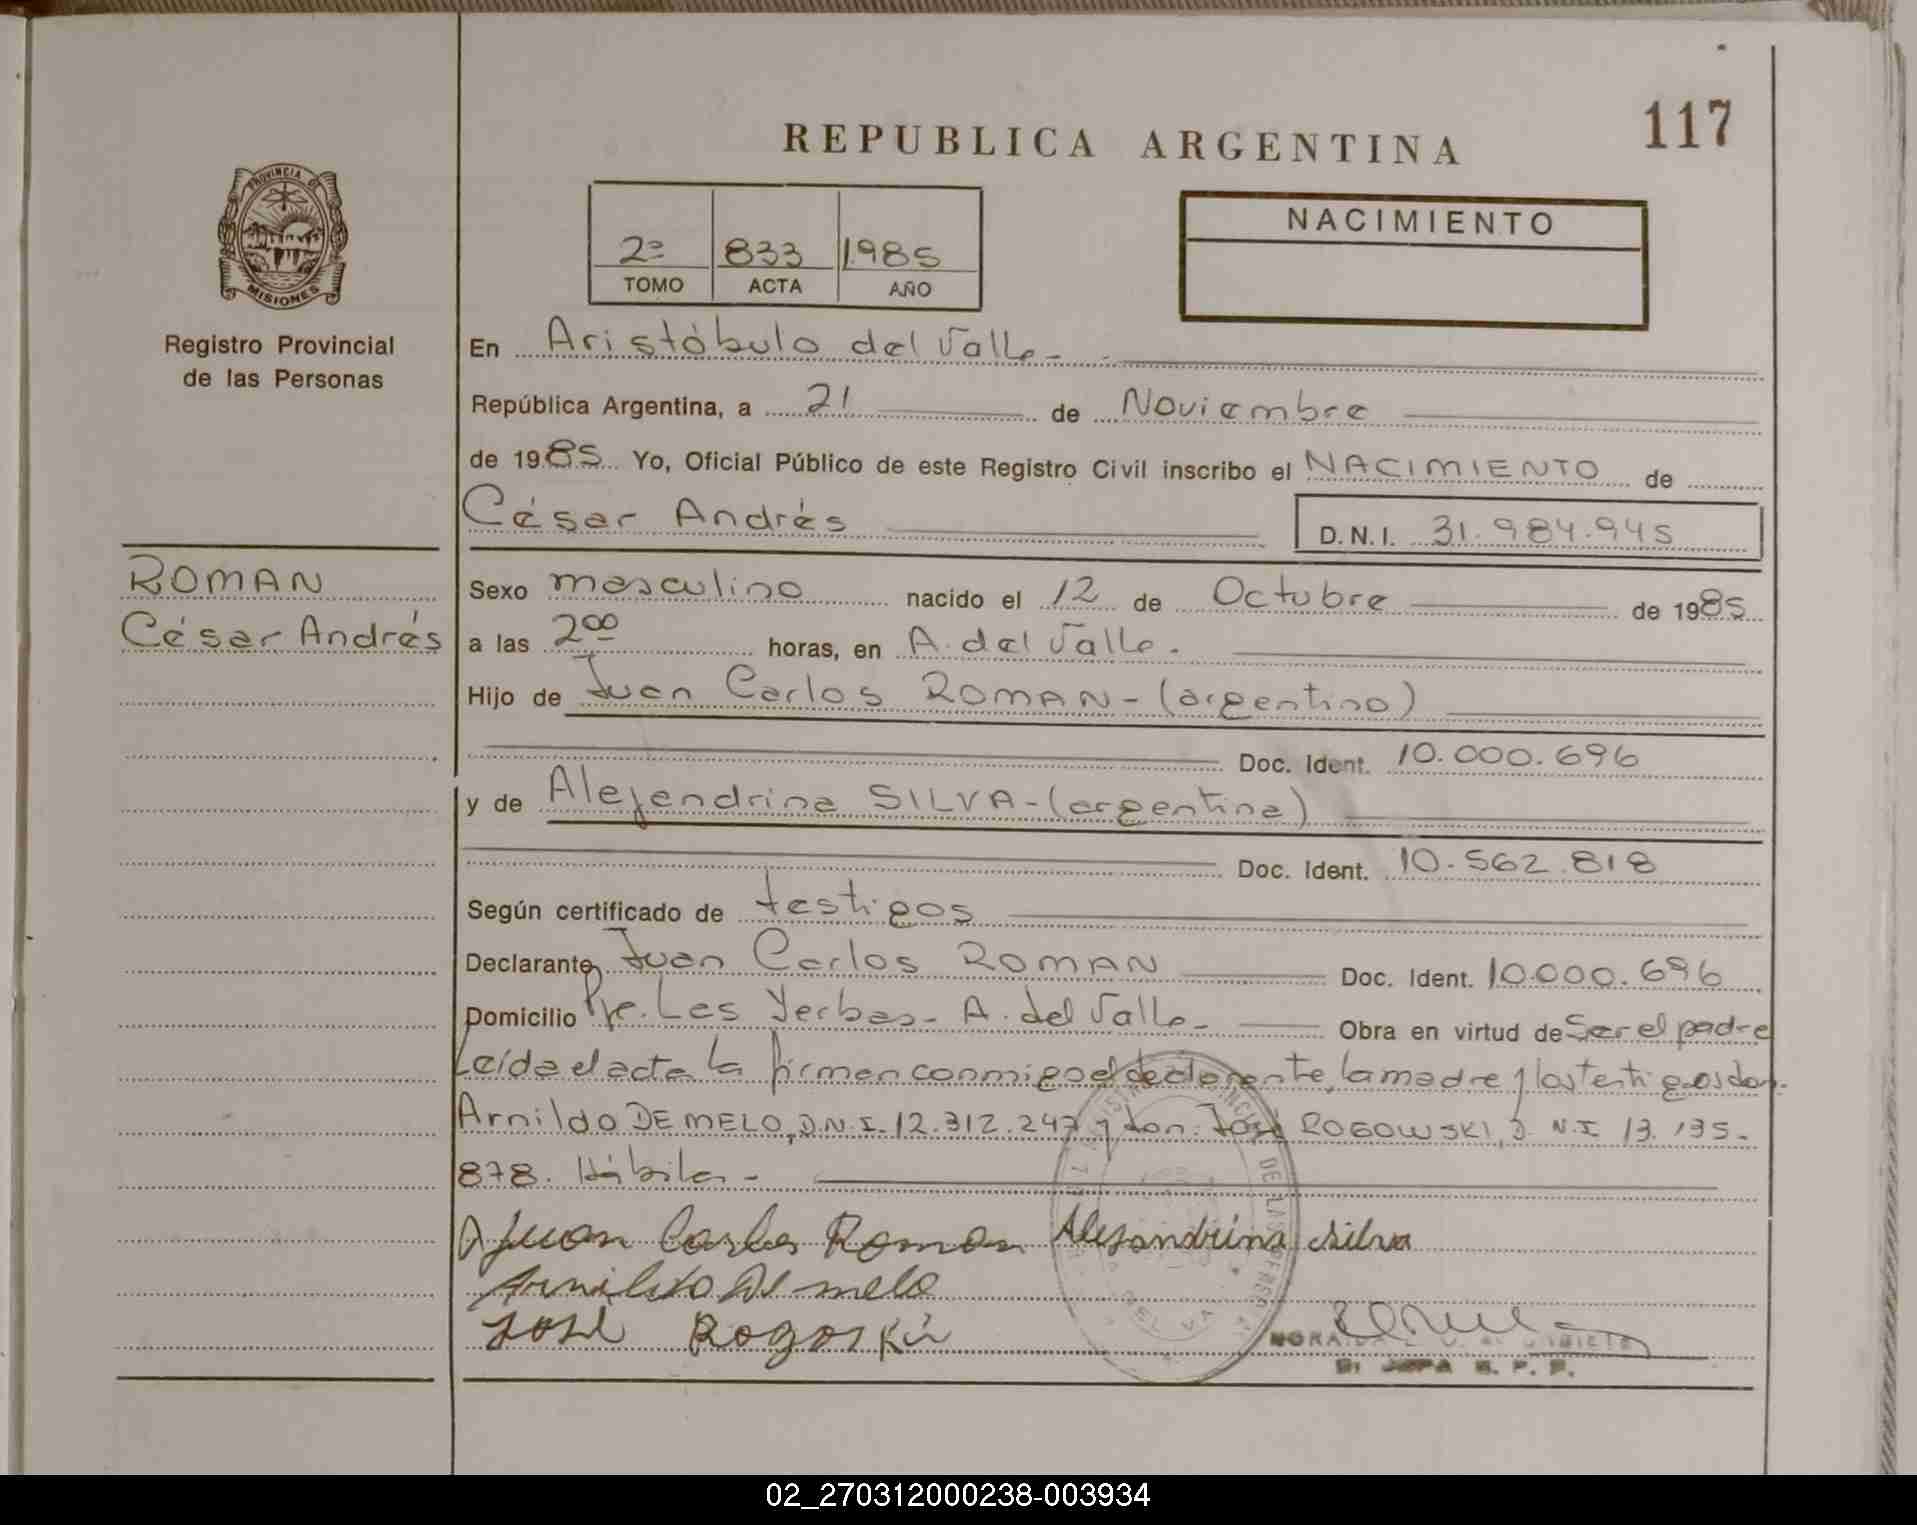 117
REPUBLICA ARGENTINA
PROVINCIA DE
MISIONES
Registro Provincial
de las Personas
2º 833 1985
TOMO ACTA AÑO
NACIMIENTO
En Aristóbulo del Valle-
República Argentina, a 21 de Noviembre
de 1985 Yo, Oficial Público de este Registro Civil inscribo el NACIMIENTO de
César Andrés D.N.I. 31.984.945
ROMAN
César Andrés
Sexo masculino nacido el 12 de Octubre de 1985
a las 2⁰⁰ horas, en A. del Valle.
Hijo de Juan Carlos ROMAN-(argentino)
Doc. Ident. 10.000.696
y de Alejandrina SILVA-(argentina)
Doc. Ident. 10.562.818
Según certificado de testigos
Declarante Juan Carlos ROMAN Doc. Ident. 10.000.696
Domicilio Pje. Las Yerbas- A. del Valle- Obra en virtud de Ser el padre
Leída el acta la firman conmigo el declarante, la madre y los testigos don.
Arnildo DE MELO, D.N.I. 12.312.247 y don. José ROGOWSKI, D.N.I 13.135.
878. Hábiles-
Juan Carlos Roman Alejandrina Silva
Arnildo De melo
José Rogoski
JEFA R. P. P.
02_270312000238-003934